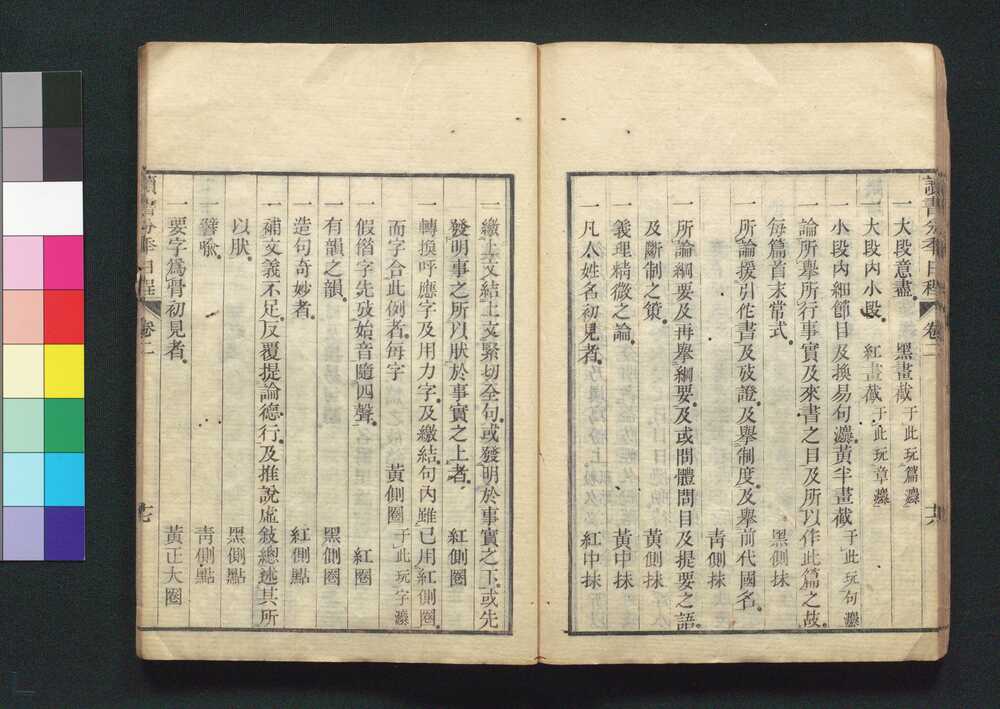 讀書分年日程 卷二 十六
一大段意盡 黑畫截 於此玩篇灋
一大段內小段 紅畫截 於此玩章灋
一小段內細節目及換易句灋黃半畫截 於此玩句灋
一論所舉所行事實及來書之目及所以作此篇之故
每篇首末常式 黑側抹
一所論援引他書及攷證及舉制度及舉前代國名
青側抹
一所論綱要及再舉綱要及或問體問目及提要之語
及斷制之策 黃側抹
一義理精微之論 黃中抹
一凡人姓名初見者 紅中抹
一繳上文結上文緊切全句或發明於事實之下或先
發明事之所以狀於事實之上者 紅側圈
一轉換呼應字及用力字及繳結句內雖已用紅側圈
而字合此例者每字 黃側圈 於此玩字灋
一假偕字先攷始音隨四聲 紅圈
一有韻之韻 黑側圈
一造句奇妙者 紅側點
一補文義不足反覆提論德行及推說虛敍總述其所
以狀 黑側點
一譬喻 青側點
一要字為骨初見者 黃正大圈
讀書分年日程 卷二 十七